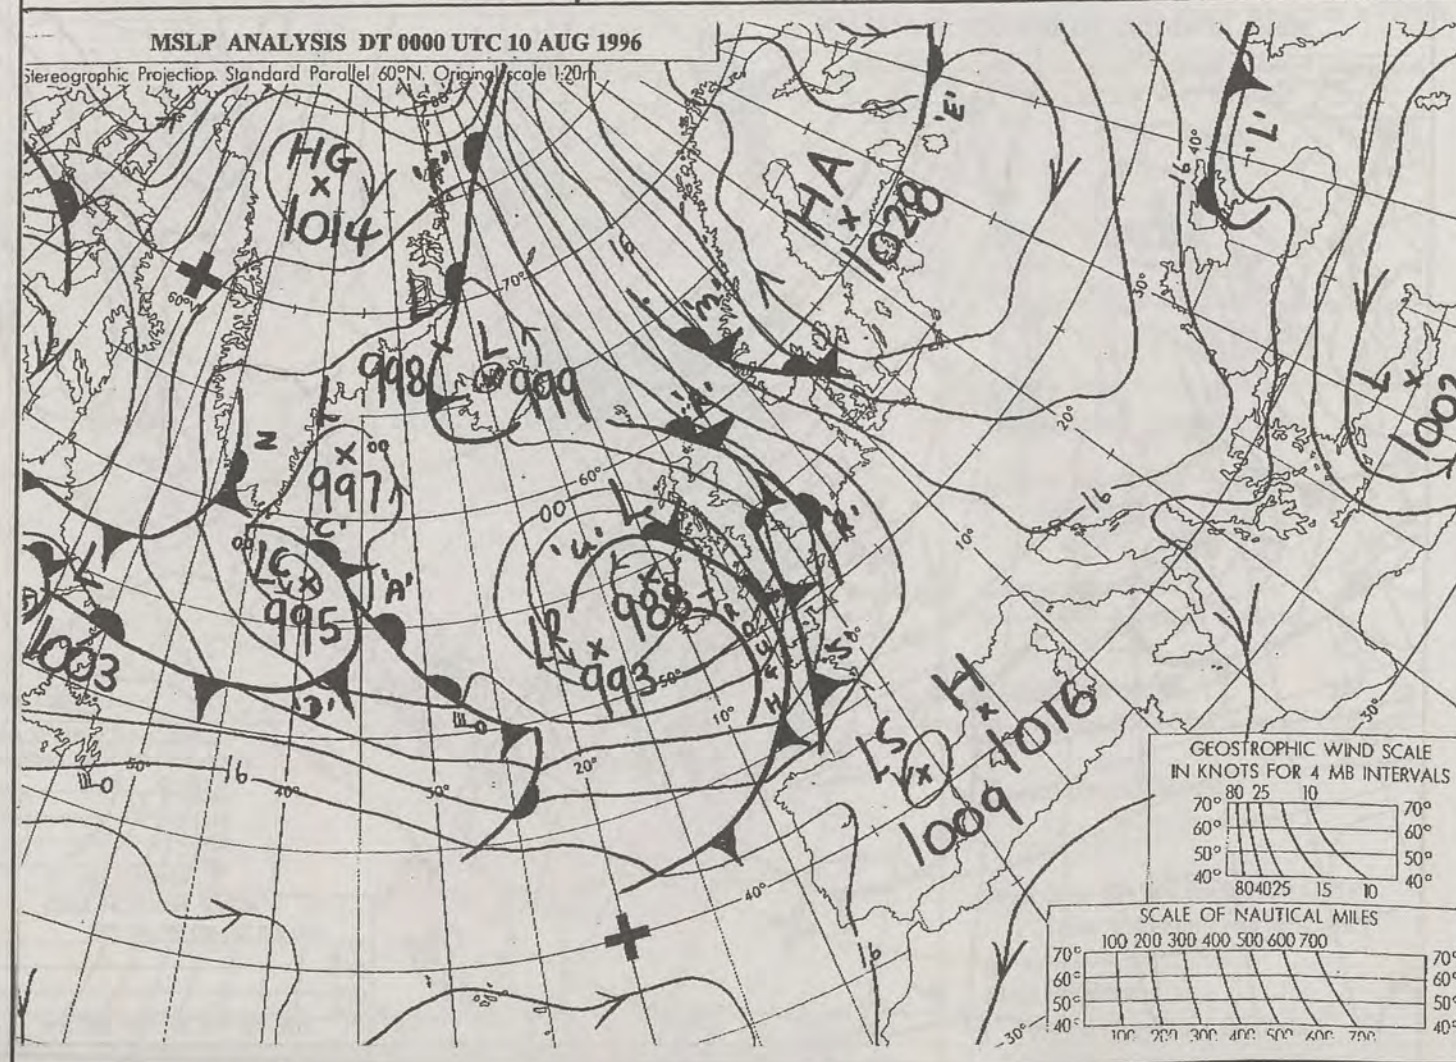 MSLP ANALYSIS DT 0000 UTC 10 AUG 1996
Stereographic Projection. Standard Parallel 60°N. Original scale 1:20m
HG
1014
'E'
HA
1028
'L'
16
40°
60°N
70°
16
'M'
30°
L
998
999
L
1002
N
L
00
997
20°
60°
00
L
16
'C'
'U'
'R'
10°
00
LC
'A'
L
L
988
995
LR
993
50°
1003
'B'
'S'
10°
H
1016
LS
1009
0
50°
16
40°
30°
20°
40°
16
30°
30°
GEOSTROPHIC WIND SCALE
IN KNOTS FOR 4 MB INTERVALS
80 25 10
70° 70°
60° 60°
50° 50°
40° 40°
80 40 25 15 10
SCALE OF NAUTICAL MILES
100 200 300 400 500 600 700
70° 70°
60° 60°
50° 50°
40° 40°
100 200 300 400 500 600 700